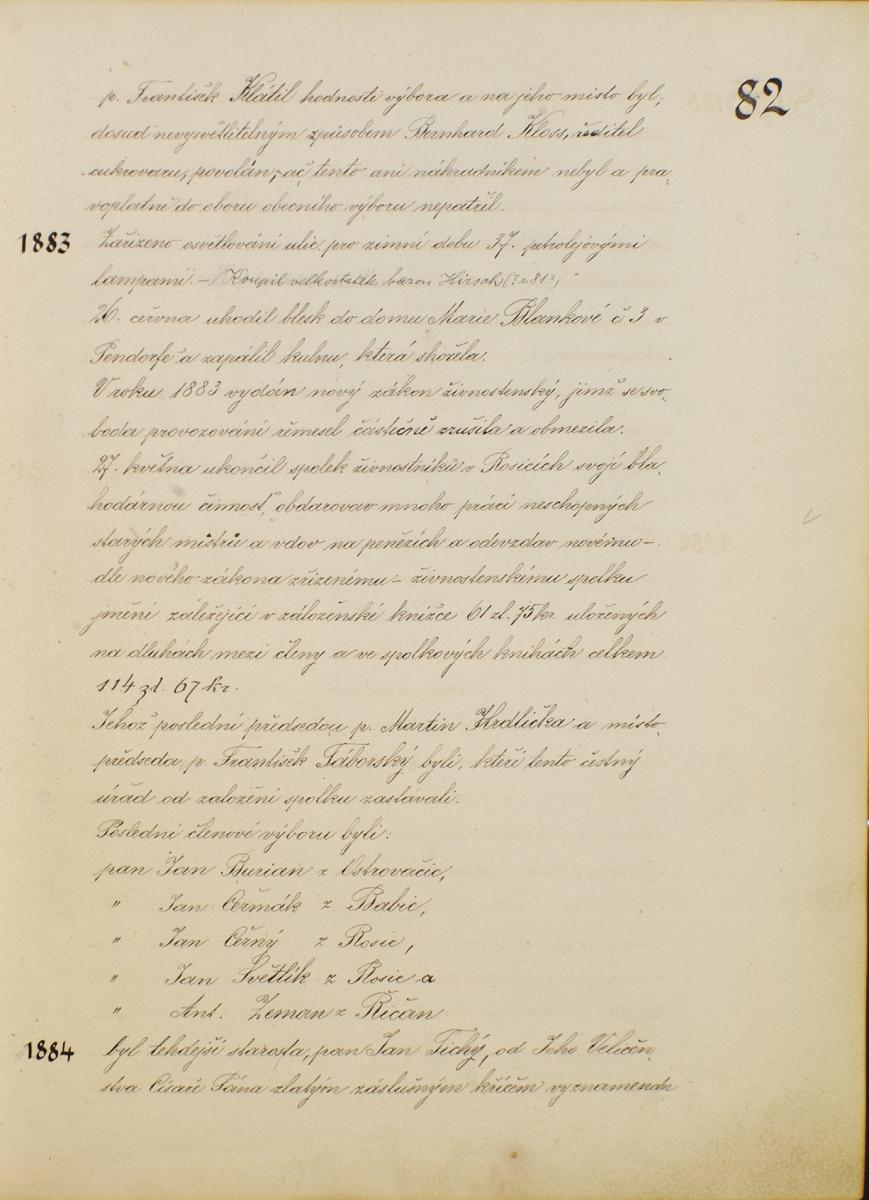 82
p. František Klátil hodnosti výbora a na jeho místo byl,
dosud nevysvětlitelným způsobem Bernhard Kloss, ředitel
cukrovaru, povolán, ač tento ani náhradníkem nebyl a pra-
voplatně do oboru obecního výboru nepatřil.
1883 Zařízeno osvětlování ulic pro zimní dobu 37. petrolejovými
lampami. – Koupil velkostatek baron Hirsch (? r. 81?)
26. června uhodil blesk do domu Marie Blankové č 3 v
Pendorfě a zapálil kulnu, která shořela.
V roku 1883 vydán nový zákon živnostenský, jimž se svo-
boda provozování řemesel částečně zrušila a obmezila.
27. května ukončil spolek živnostníků v Rosicích svojí bla-
hodárnou činnosť, obdarovav mnoho prácí neschopných
starých mistrů a vdov na penězích a odevzdav novému –
dle nového zákona zřízenému – živnostenskému spolku
jmění záležející v záloženské knížce 61 zl. 75 kr. uložených
na dluhách mezi členy a ve spolkových knihách celkem
114 zl. 67 kr.
Jehož poslední předsedou p. Martin Hrdlička a místo-
předseda p. František Táborský byli, kteří tento čestný
úřad od založení spolku zastávali.
Poslední členové výboru byli:
pan Jan Burian z Ostrovačic,
" Jan Čermák z Babic,
" Jan Černý z Rosic,
" Jan Světlík z Rosic a
" Ant. Zeman z Říčan
1884 byl tehdejší starosta, pan Jan Tichý, od Jeho Veličen-
stva Císaře Pána zlatým záslužným křížem vyznamenán